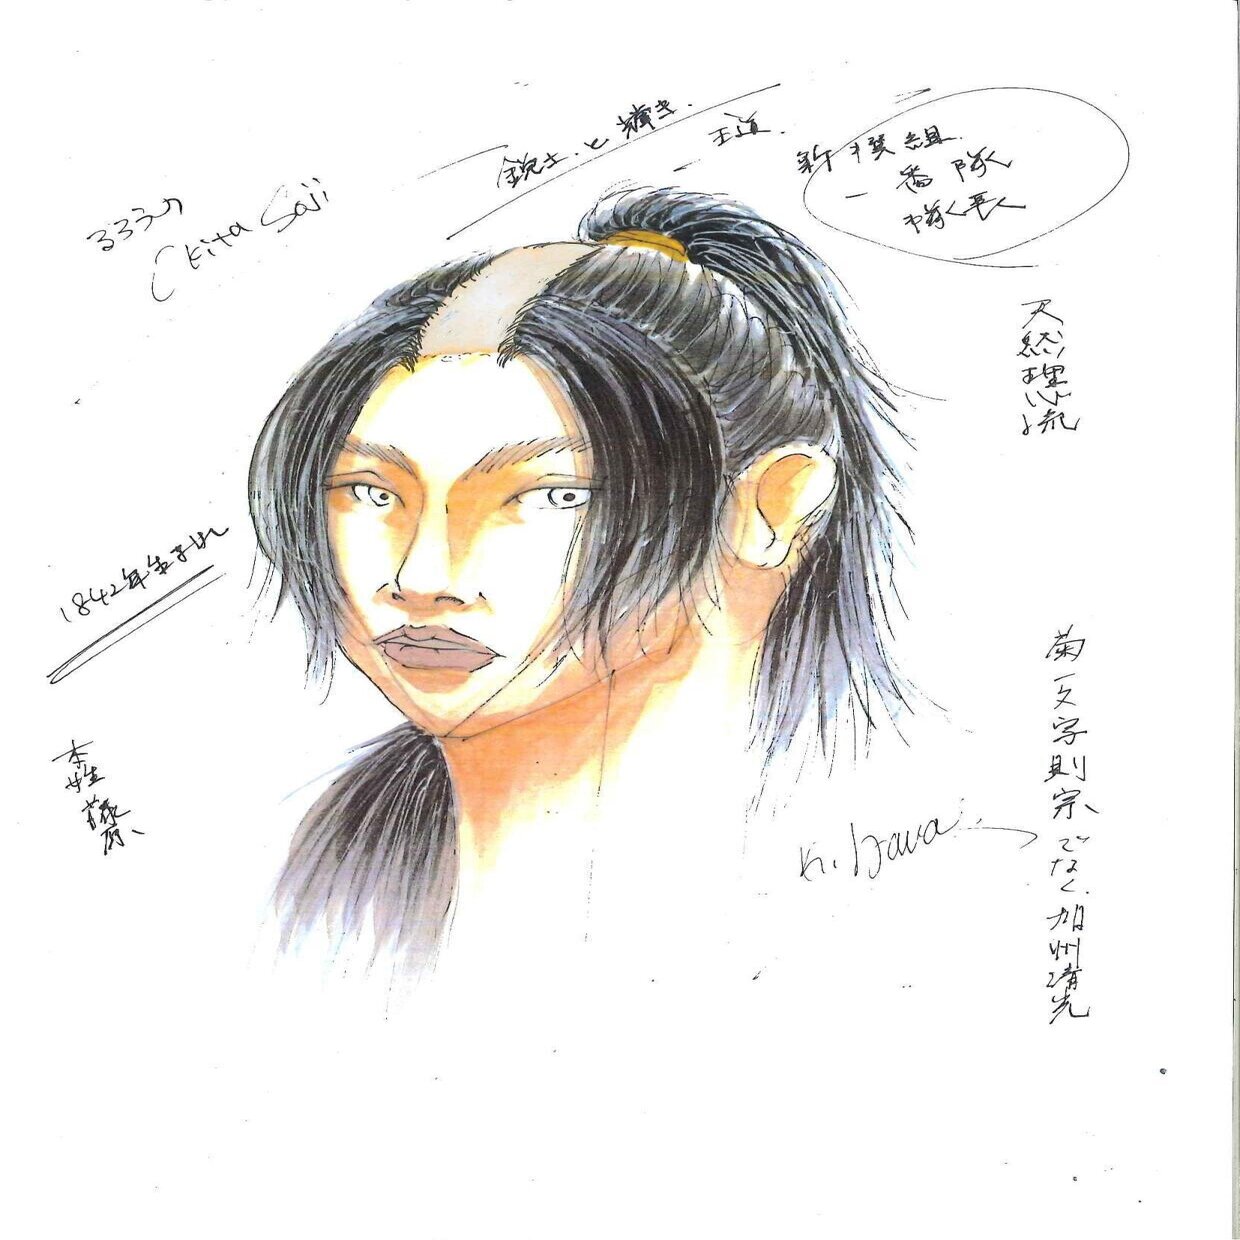 るろうの
Okita Soji
鋭士と輝き.
王道.
新撰組
一番隊
隊長
天然理心流
1842年生まれ
本姓藤原、
菊一文字則宗でなく.加州清光